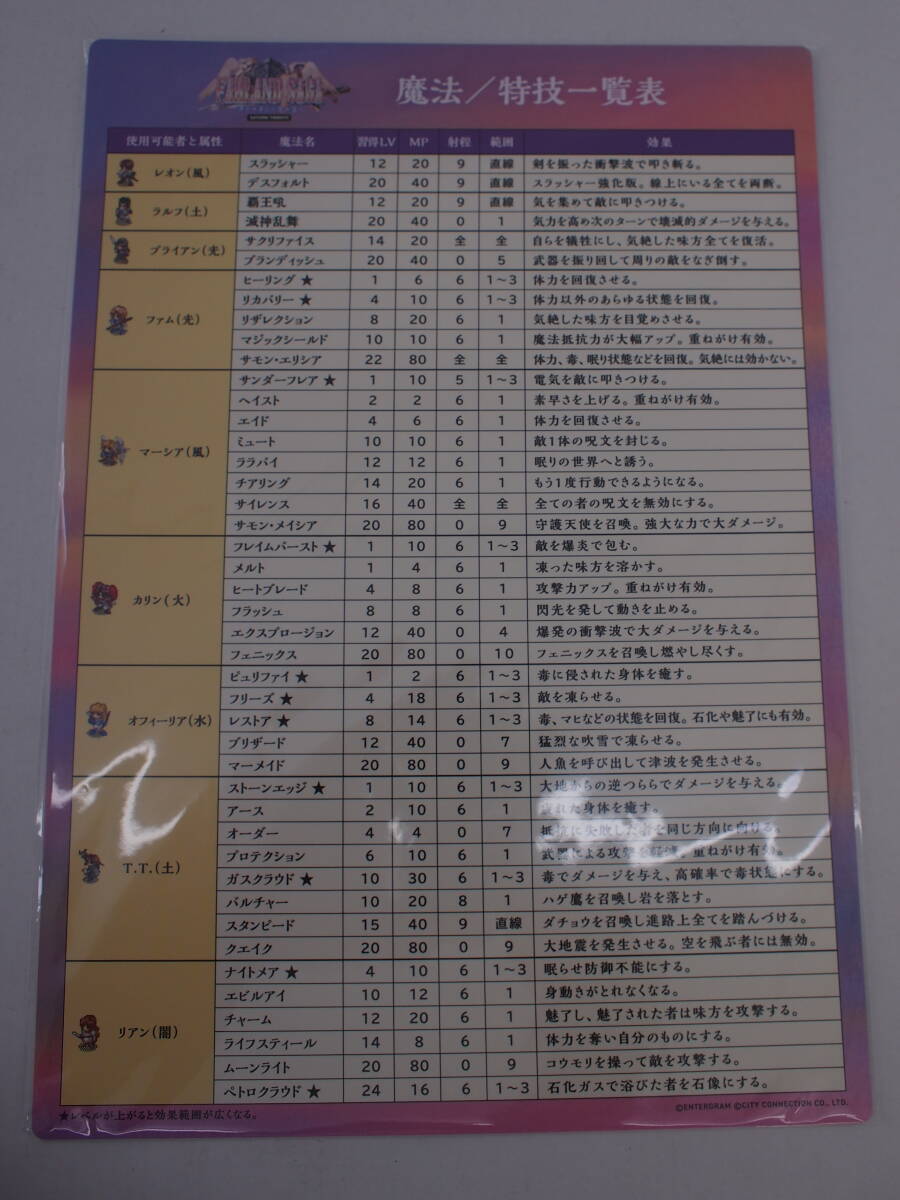 魔法／特技一覧表
使用可能者と属性 魔法名 習得LV MP 射程 範囲 効果
レオン(風) スラッシャー 12 20 9 直線 剣を振った衝撃波で叩き斬る。
デスフォルト 20 40 9 直線 スラッシャー強化版。線上にいる全てを両断。
ラルフ(土) 覇王吼 12 20 9 直線 気を集めて敵に叩きつける。
滅神乱舞 20 40 0 1 気力を高め次のターンで壊滅的ダメージを与える。
ブライアン(光) サクリファイス 14 20 全 全 自らを犠牲にし、気絶した味方全てを復活。
ブランディッシュ 20 40 0 5 武器を振り回して周りの敵をなぎ倒す。
ファム(光) ヒーリング★ 1 6 6 1～3 体力を回復させる。
リカバリー★ 4 10 6 1～3 体力以外のあらゆる状態を回復。
リザレクション 8 20 6 1 気絶した味方を目覚めさせる。
マジックシールド 10 10 6 1 魔法抵抗力が大幅アップ。重ねがけ有効。
サモン・エリシア 22 80 全 全 体力、毒、眠り状態などを回復。気絶には効かない。
マーシア(風) サンダーフレア★ 1 10 5 1～3 電気を敵に叩きつける。
ヘイスト 2 2 6 1 素早さを上げる。重ねがけ有効。
エイド 4 6 6 1 体力を回復させる。
ミュート 10 10 6 1 敵1体の呪文を封じる。
ララバイ 12 12 6 1 眠りの世界へと誘う。
チアリング 14 20 6 1 もう1度行動できるようになる。
サイレンス 16 40 全 全 全ての者の呪文を無効にする。
サモン・メイシア 20 80 0 9 守護天使を召喚。強大な力で大ダメージ。
カリン(火) フレイムバースト★ 1 10 6 1～3 敵を爆炎で包む。
メルト 1 4 6 1 凍った味方を溶かす。
ヒートブレード 4 8 6 1 攻撃力アップ。重ねがけ有効。
フラッシュ 8 8 6 1 閃光を発して動きを止める。
エクスプロージョン 12 40 0 4 爆発の衝撃波で大ダメージを与える。
フェニックス 20 80 0 10 フェニックスを召喚し燃やし尽くす。
オフィーリア(水) ピュリファイ★ 1 2 6 1～3 毒に侵された身体を癒す。
フリーズ★ 4 18 6 1～3 敵を凍らせる。
レストア★ 8 14 6 1～3 毒、マヒなどの状態を回復。石化や魅了にも有効。
ブリザード 12 40 0 7 猛烈な吹雪で凍らせる。
マーメイド 20 80 0 9 人魚を呼び出して津波を発生させる。
T.T.(土) ストーンエッジ★ 1 10 6 1～3 大地からの逆つららでダメージを与える。
アース 2 10 6 1 れた身体を癒す。
オーダー 4 4 0 7 抵抗に失敗した者を同じ方向に向ける。
プロテクション 6 10 6 1 武器による攻撃を軽減。重ねがけ有効。
ガスクラウド★ 10 30 6 1～3 毒でダメージを与え、高確率で毒状態にする。
バルチャー 10 20 8 1 ハゲ鷹を召喚し岩を落とす。
スタンピード 15 40 9 直線 ダチョウを召喚し進路上全てを踏んづける。
クエイク 20 80 0 9 大地震を発生させる。空を飛ぶ者には無効。
リアン(闇) ナイトメア★ 4 10 6 1～3 眠らせ防御不能にする。
エビルアイ 10 12 6 1 身動きがとれなくなる。
チャーム 12 20 6 1 魅了し、魅了された者は味方を攻撃する。
ライフスティール 14 8 6 1 体力を奪い自分のものにする。
ムーンライト 20 80 0 9 コウモリを操って敵を攻撃する。
ペトロクラウド★ 24 16 6 1～3 石化ガスで浴びた者を石像にする。
★レベルが上がると効果範囲が広くなる。
©ENTERGRAM ©CITY CONNECTION CO., LTD.